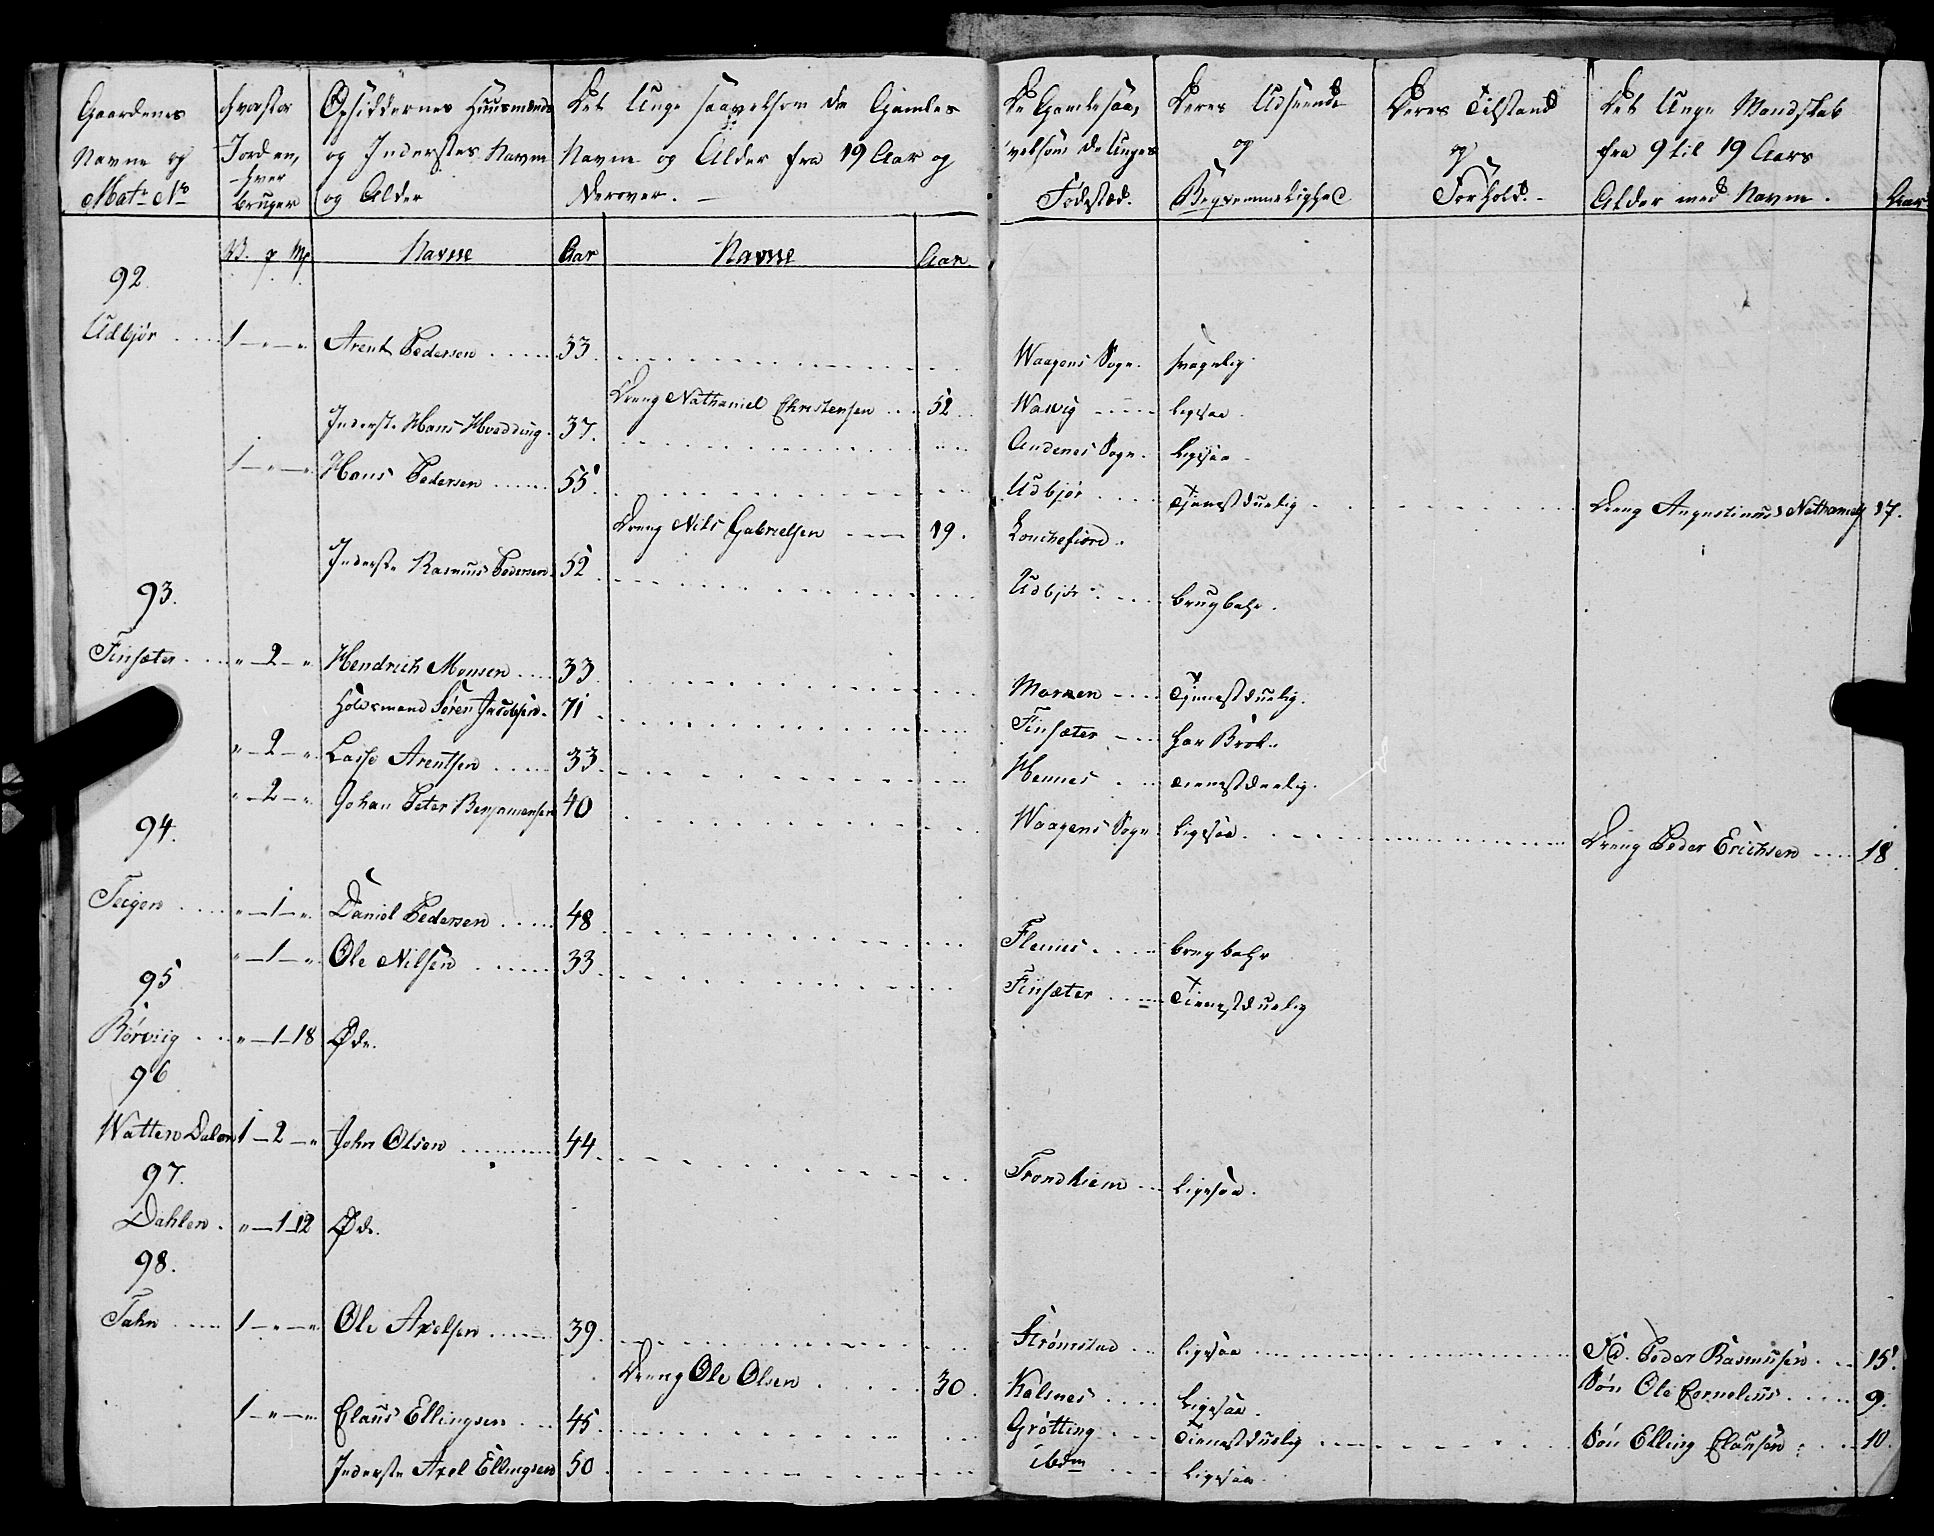 Gaardenes Navne og Matr No | Hvorstor Jorden, hver bruger | Opsiddernes Huusmænds og Inderstes Navne og Alder | Det Unge saavelsom de Gamles Navne og Alder fra 19 Aar og derover. | De Gamle saavelsom de Unges Fødested. | Deres Udseende og Beqvemmelighed | Deres Tilstand og Forhold. | Det Unge Mandskab fra 9 til 19 Aars Alder med Navne. | Aar
Navne | Aar | Navne | Aar
92.
Udbjør .... 1 - " - " Arent Pedersen ...... 33. Waagens Sogn. svagelig.
Dreng Nathaniel Christensen ... 52. ligesaa.
Inderste Hans Hvedding. 37. Andenes Sogn. Ligesaa.
1 - " - " Hans Pedersen ...... 55. Udbjør .... Tjenestduelig. Dreng Augustinus Nathaniels 17.
Dreng Nils Gabrielsen .... 19.
Inderste Rasmus Pedersen. 52. Udbjør .... brugbahr.
93.
Finsæter .... " - 2 - " Hendrich Monsen .... 33. Tjenestduelig.
Søren Jacobsen. 71. Finsæter .... har Brok.
" - 2 - " Lasse Arentsen ..... 33. Hennes .... Tienestduelig.
" - 2 - " Johan Peter Benjamensen 40. Waagens Sogn. Ligesaa. Dreng Peder Erichsen .... 18.
94.
Teigen .... " - 1 - " Daniel Pedersen ..... 48. Flenes .... brugbahr
" - 1 - " Ole Nilsen ...... 33. Finsæter .... Tienestduelig
95
Rørviig .... " - 1 - 18 Øde.
96
Watten Dalen 1 - 2 - " John Olsen ........ 44. Trondhiem .. Ligesaa.
97.
Dahlen. " - 1 - 12 Øde.
98.
Tahn .... 1 - " - " Ole Axelsen ...... 39. Strømstad .. ligesaa .... Peder Rasmusen ... 15.
Dreng Ole Olsen ..... 30. Kalsnes .... Ligesaa. Søn Ole Cornelius .... 9.
1 - " - " Claus Ellingsen ... 45. Grøtting .... Tienestduelig .... Søn Elling Clausen .... 10.
Inderste Axel Ellingsen 50. ibdm .... Ligesaa.